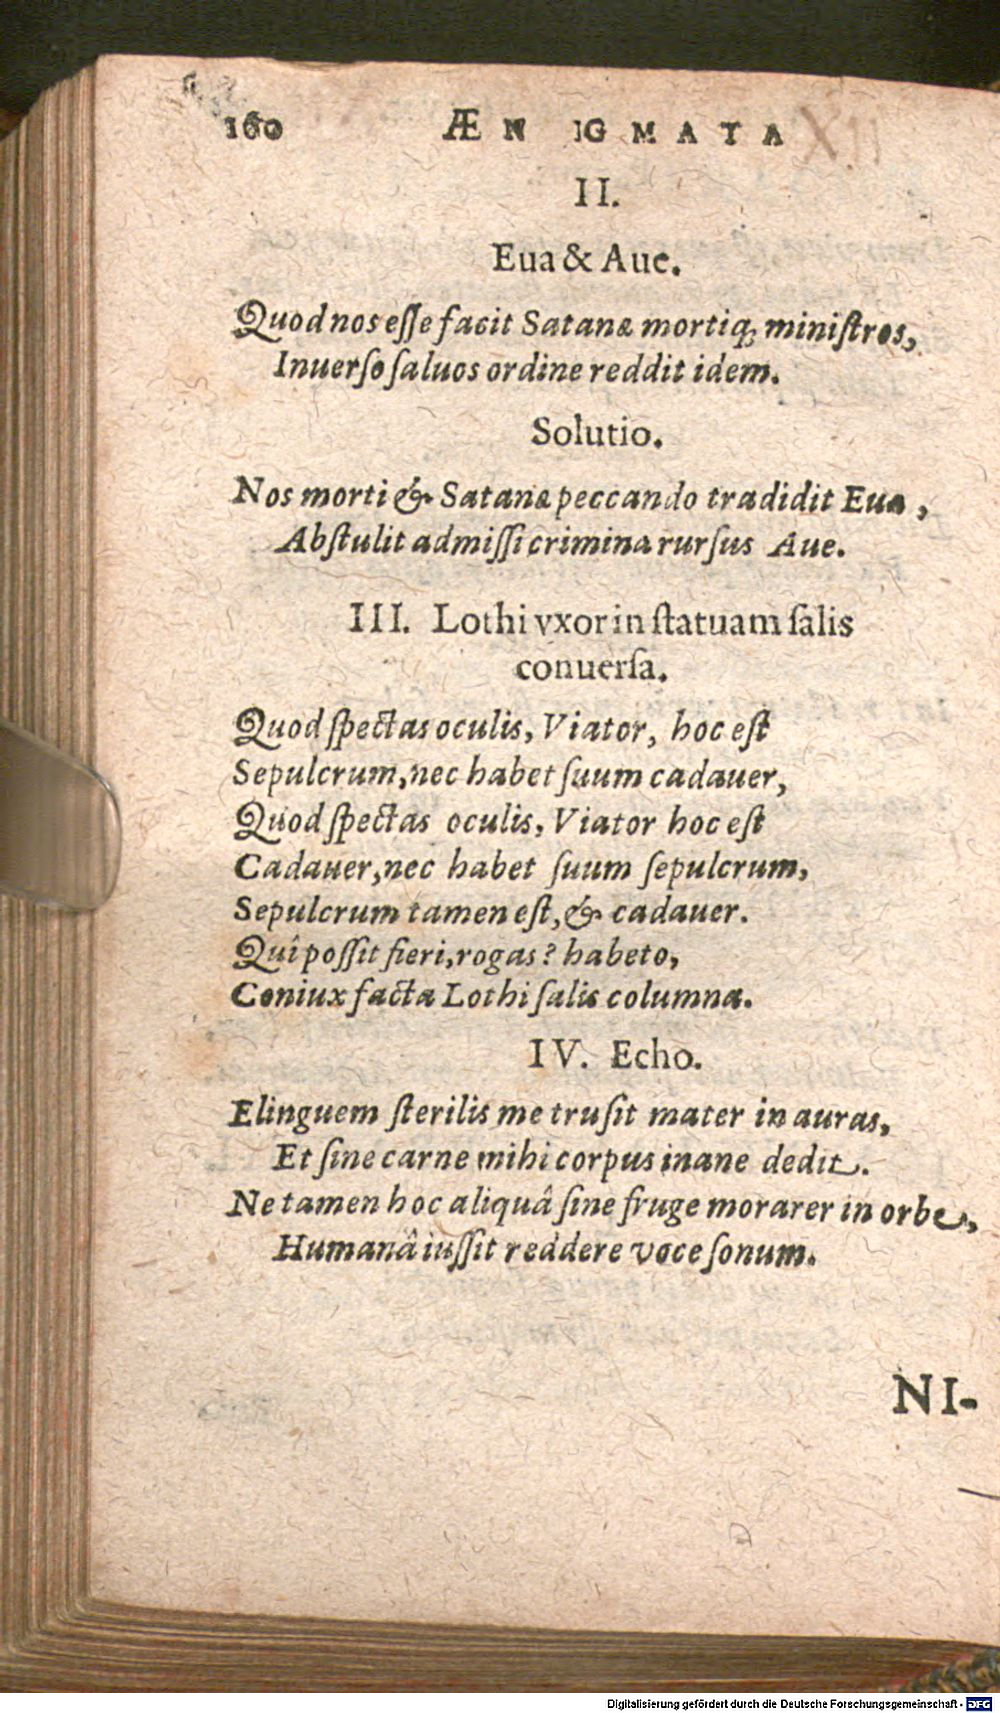 160 ÆNIGMATA XII
II.
Eua & Aue.
Quod nos eſſe facit Satanæ mortiq; miniſtros,
Inuerſo ſaluos ordine reddit idem.
Solutio.
Nos morti & Satanæ peccando tradidit Eua,
Abſtulit admiſſi crimina rurſus Aue.
III. Lothi vxor in ſtatuam ſalis
conuerſa.
Quod ſpectas oculis, Viator, hoc eſt
Sepulcrum, nec habet ſuum cadauer,
Quod ſpectas oculis, Viator hoc eſt
Cadauer, nec habet ſuum ſepulcrum,
Sepulcrum tamen eſt, & cadauer.
Quî poſſit fieri, rogas? habeto,
Coniux facta Lothi ſalis columna.
IV. Echo.
Elinguem ſterilis me truſit mater in auras,
Et ſine carne mihi corpus inane dedit.
Ne tamen hoc aliquâ ſine fruge morarer in orbe,
Humanâ iuſſit reddere voce ſonum.
NI-
Digitalisierung gefördert durch die Deutsche Forschungsgemeinschaft - DFG